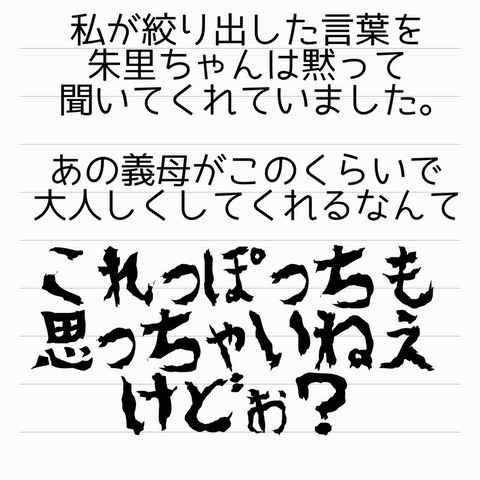 私が絞り出した言葉を
朱里ちゃんは黙って
聞いてくれていました。
あの義母がこのくらいで
大人しくしてくれるなんて
これっぽっちも
思っちゃいねえ
けどぉ?